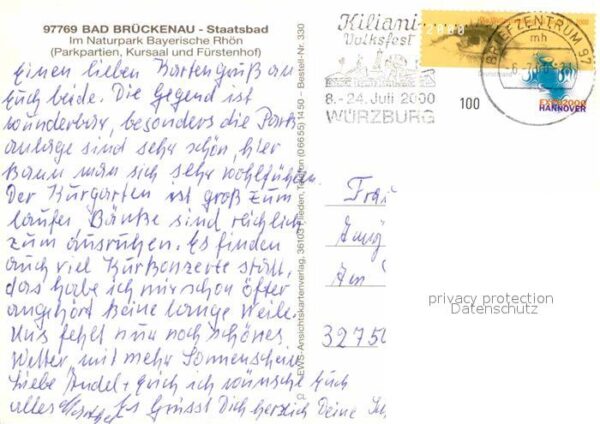 97769 BAD BRÜCKENAU - Staatsbad
Im Naturpark Bayerische Rhön
(Parkpartien, Kursaal und Fürstenhof)
Einen lieben Kartengruß an
Euch beide. Die Gegend ist
wunderbar, besonders die Park
anlage sind sehr schön, hier
kann man sich sehr wohlfühlen.
Der Kurgarten ist groß zum
laufen, Bänke sind reichlich
zum ausruhen. Es finden
auch viel Kurkonzerte statt,
das habe ich mir schon öfter
angehört keine lange Weile.
Uns fehlt nur noch schönes
Wetter, mit mehr Sonnenschein
Liebe ich wünsche Euch
alles Es Grüsst Dich herzlich Deine
EWS-Ansichtskartenverlag, 36103 Flieden, Telefon (06655) 1450 - Bestell-Nr. 330
Kiliani-
Volksfest
8.-24. Juli 2000
WÜRZBURG
BRIEFZENTRUM 97
mh
2000
100
EXPO2000
HANNOVER
Frau
Am
3275
privacy protection
Datenschutz